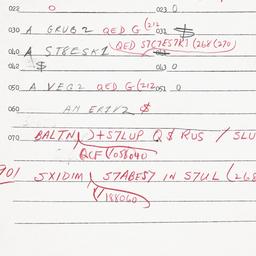 022 0 023 0
030 A GRUB2 QED G (212 031 $
040 A STEESK1 QED S7C7ES7K1 (268 (270)
042 $ 043 0
050 A VEG2 QED G (212 051 0
060 AN $
070 BALTN )+S7LUP Q $ RUS / SLU
QCF (/058040
901 SXIDIM S7ABES7 IN S7UL (268
(/188060